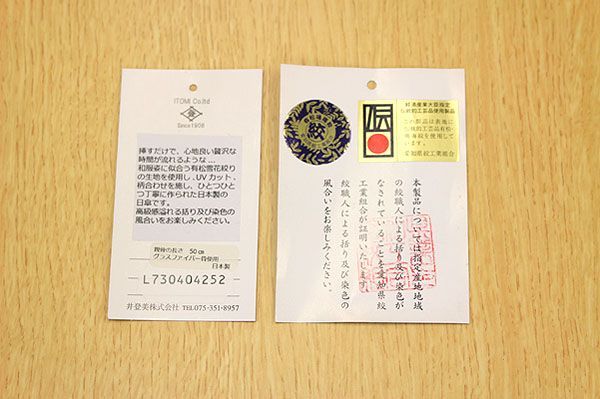 ITOMI Co.ltd
Since1906
挿すだけで、心地良い贅沢な
時間が流れるような…
和服姿に似合う有松雪花絞り
の生地を使用し、UVカット、
柄合わせを施し、ひとつひと
つ丁寧に作られた日本製の
日傘です。
高級感溢れる括り及び染色の
風合いをお楽しみください。
親骨の長さ 50cm
グラスファイバー骨使用
日本製
L730404252
井登美株式会社 TEL075-351-8957
絞
経済産業大臣指定
伝統的工芸品使用製品
伝
この製品は表地に
伝統的工芸品有松・
鳴海絞を使用して
います。
愛知県絞工業組合
本製品については指定産地地域
の絞職人による括り及び染色が
なされていることを愛知県絞
工業組合が証明いたします。
絞職人による括り及び染色の
風合いをお楽しみください。